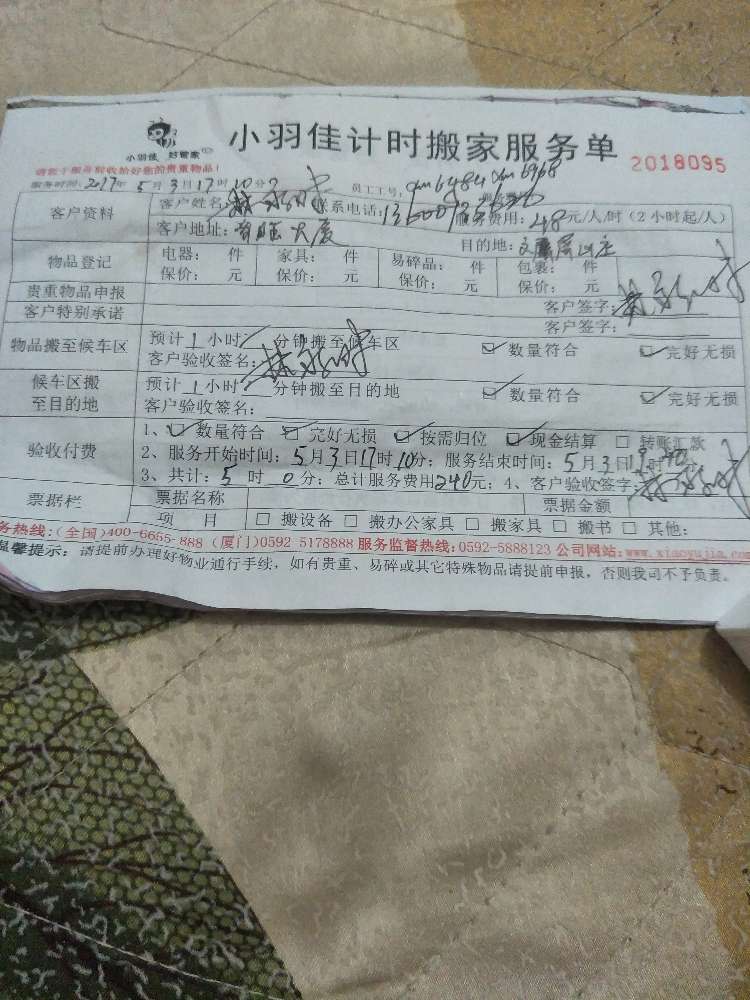 小羽佳 好管家
小羽佳计时搬家服务单
2018095
服务时间:2017年5月3日17时10分 员工工号:
客户资料 客户姓名: 联系电话: 服务费用:48元/人/时(2小时起/人)
客户地址: 大厦 目的地:
物品登记 电器: 件 家具: 件 易碎品: 件 包裹: 件
保价: 元 保价: 元 保价: 元 保价: 元
贵重物品申报 客户签字:
客户特别承诺 客户签字:
物品搬至候车区 预计1小时 分钟搬至候车区 数量符合 完好无损
客户验收签名:
候车区搬至目的地 预计1小时 分钟搬至目的地 数量符合 完好无损
客户验收签名:
验收付费 1、数量符合 完好无损 按需归位 现金结算 转账汇款
2、服务开始时间:5月3日17时10分;服务结束时间:5月3日
3、共计:5时0分;总计服务费用240元;4、客户验收签字:
票据栏 票据名称 票据金额
项目 搬设备 搬办公家具 搬家具 搬书 其他:
务热线:(全国)400-6655-888 (厦门)0592 5178888 服务监督热线:0592-5888123 公司网站:www.xiaoyujia.com
温馨提示:请提前办理好物业通行手续,如有贵重、易碎或其它特殊物品请提前申报,否则我司不予负责。